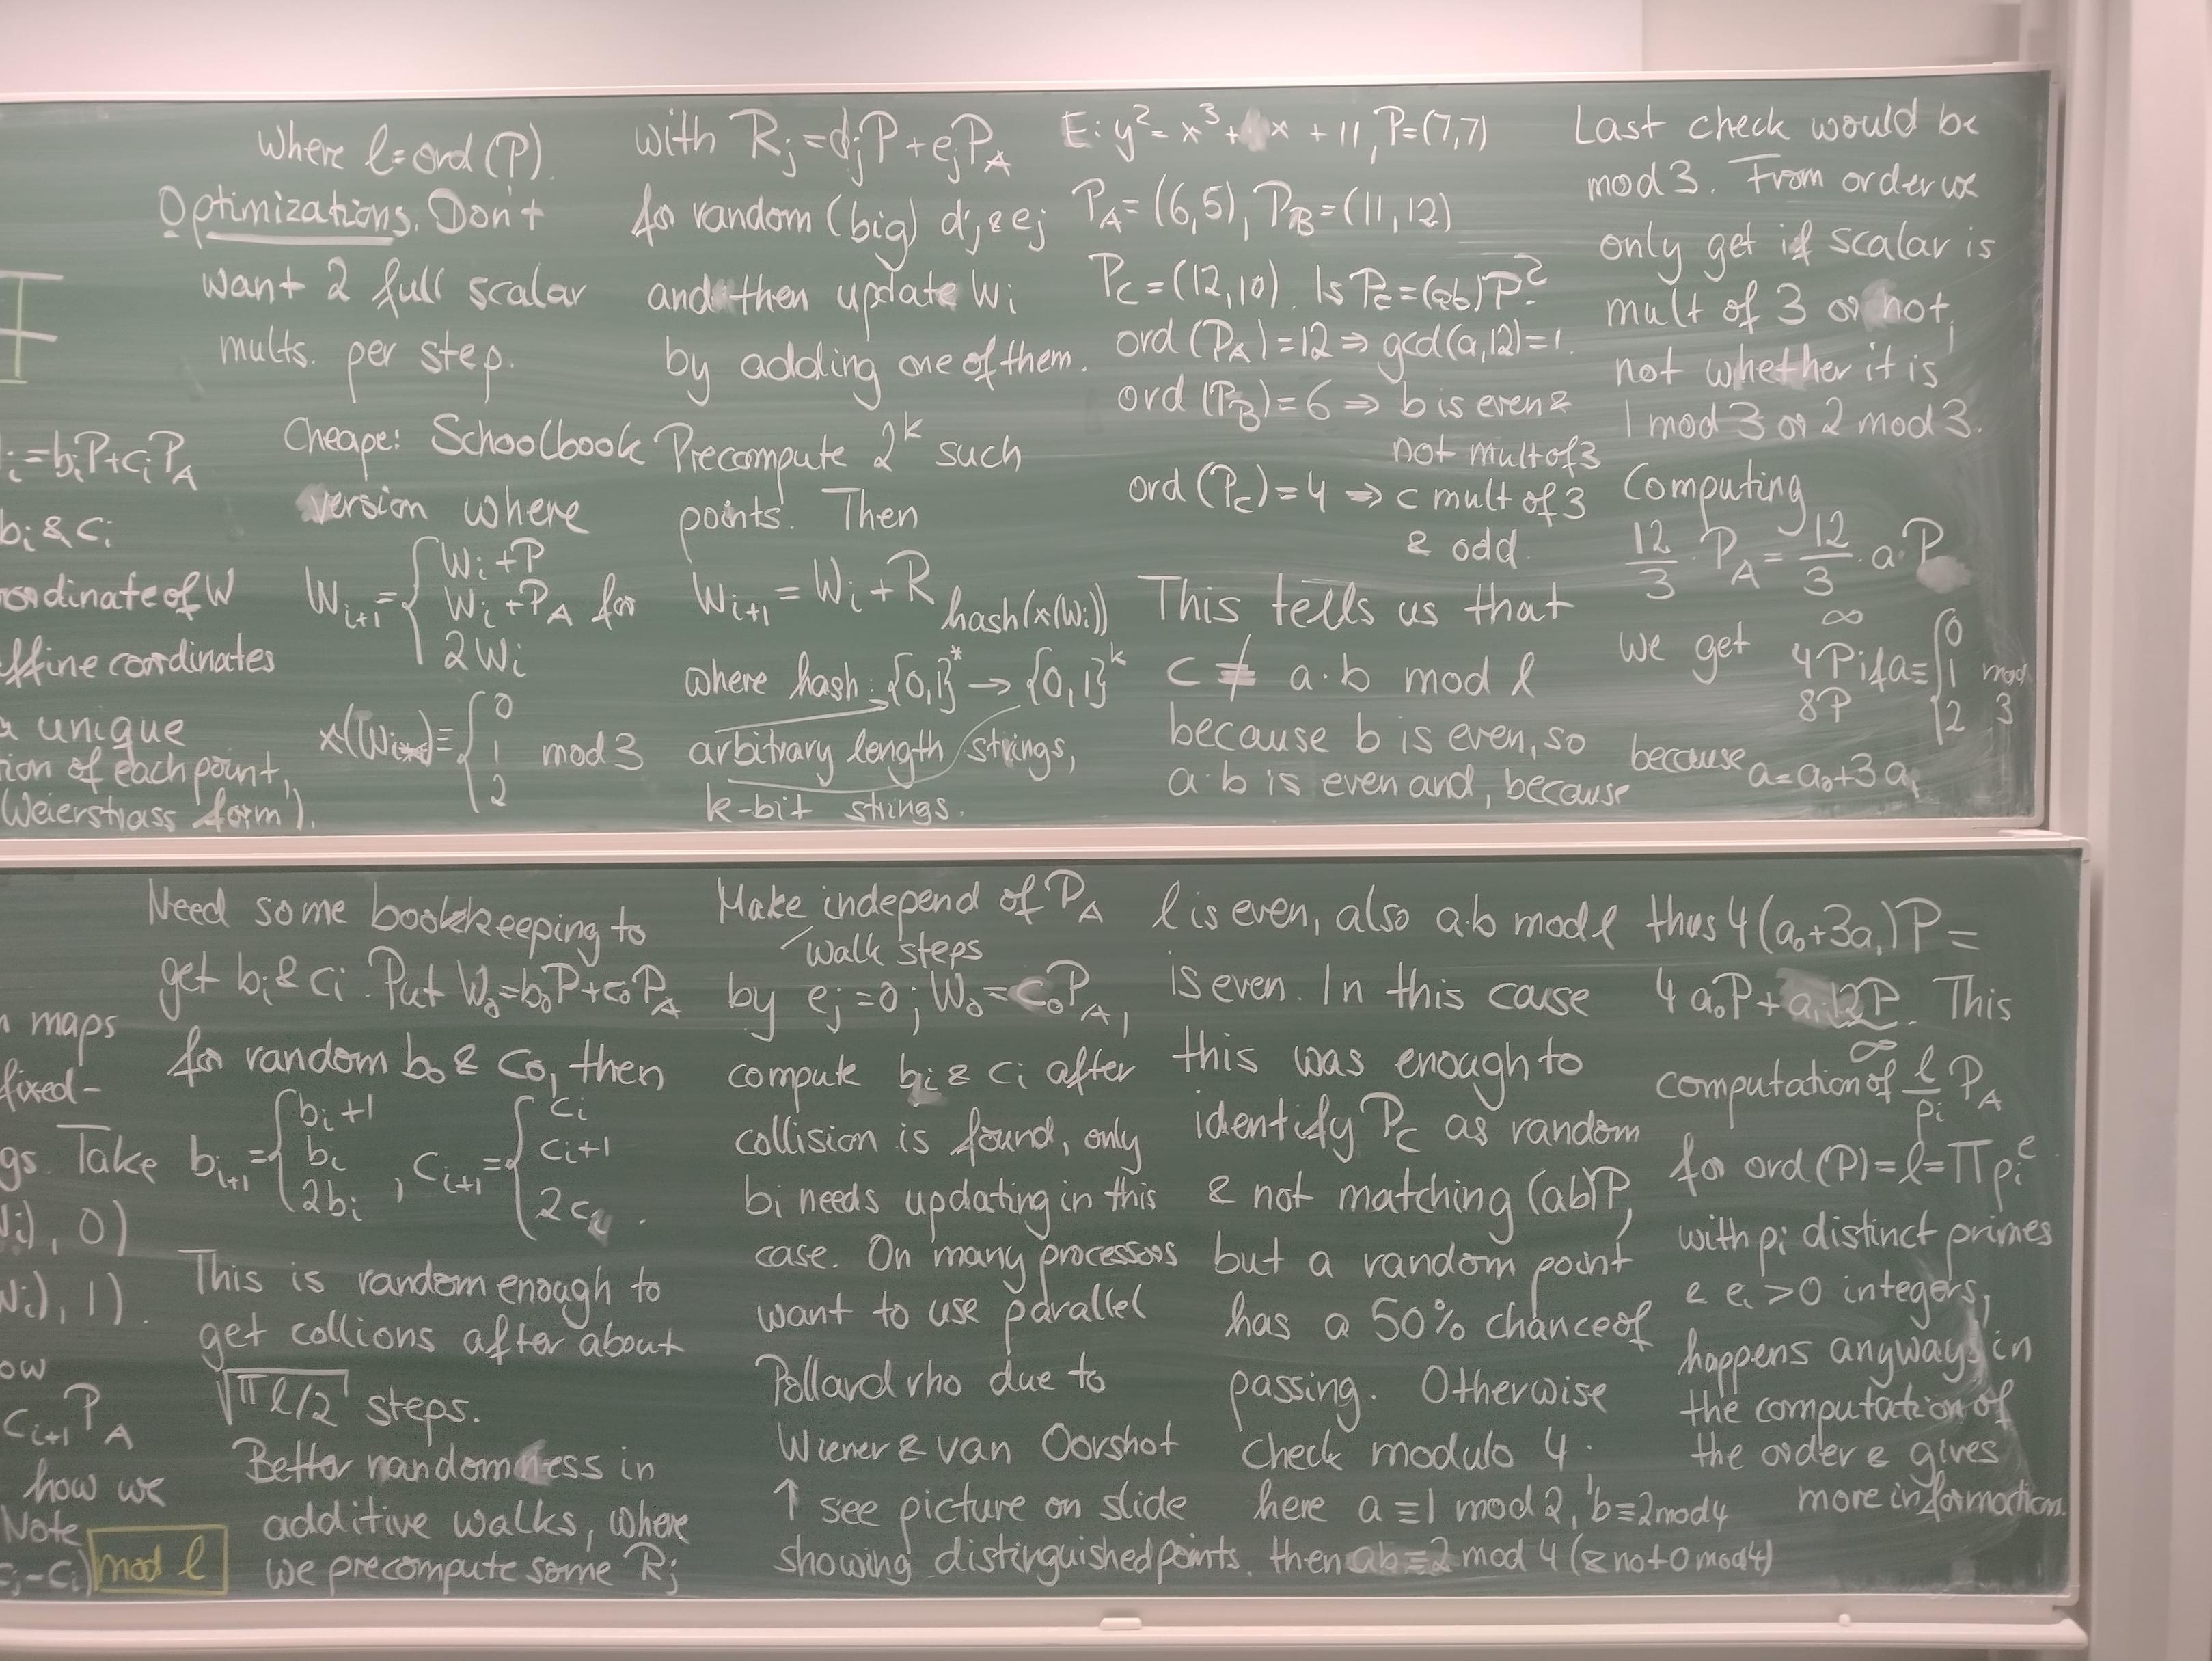 where l=ord(P).
Optimizations. Don't
want 2 full scalar
mults. per step.
Cheape: Schoolbook
version where
W_{i+1} = { W_i+P
W_i+P_A for
2W_i
x(W_i) ≡ { 0
1 mod 3
2
i = b_iP+c_iP_A
b_i & c_i
ordinate of W
ffine coordinates
a unique
ion of each point,
(Weierstrass form).
with R_j=d_jP+e_jP_A
for random (big) d_j & e_j
and then update W_i
by adding one of them.
Precompute 2^k such
points. Then
W_{i+1} = W_i + R_{hash(x(W_i))}
where hash: {0,1}^* → {0,1}^k
arbitrary length strings,
k-bit strings.
E: y²= x³+ x + 11, P=(7,7)
P_A=(6,5), P_B=(11,12)
P_C=(12,10). Is P_C=(ab)P?
ord (P_A)=12 ⇒ gcd(a,12)=1.
ord (P_B)=6 ⇒ b is even &
not mult of 3
ord (P_C)=4 ⇒ c mult of 3
& odd.
This tells us that
c ≢ a·b mod l
because b is even, so
a·b is even and, because
Last check would be
mod 3. From order we
only get if scalar is
mult of 3 or not,
not whether it is
1 mod 3 or 2 mod 3.
Computing
12/3 · P_A = 12/3 · a·P
∞ 0
we get 4P if a≡ { 1 mod
8P 2 3
because a=a_0+3a_1
maps
fixed-
gs. Take
W_i), 0)
W_i), 1).
ow
c_{i+1}P_A
how we
Note
c_j-c_i) mod l
Need some bookkeeping to
get b_i & c_i. Put W_0=b_0P+c_0P_A
for random b_0 & c_0, then
b_{i+1}= { b_i+1 , c_{i+1}= { c_i
b_i c_i+1
2b_i 2c_i .
This is random enough to
get collions after about
√πl/2 steps.
Better randomness in
additive walks, where
we precompute some R_j
Make independ of P_A
walk steps
by e_j=0; W_0=c_0P_A,
compute b_i & c_i after
collision is found, only
b_i needs updating in this
case. On many processors
want to use parallel
Pollard rho due to
Wiener & van Oorshot
↑ see picture on slide
showing distinguished points.
l is even, also a·b mod l
is even. In this case
this was enough to
identify P_C as random
& not matching (ab)P,
but a random point
has a 50% chance of
passing. Otherwise
check modulo 4.
here a ≡ 1 mod 2, b≡2 mod 4
then ab≡2 mod 4 (& not 0 mod 4)
thus 4(a_0+3a_1)P =
4a_0P+a_1 12P. This
∞
computation of l/p_i P_A
for ord (P)=l=∏p_i^e
with p_i distinct primes
& e_i >0 integers,
happens anyways in
the computation of
the order & gives
more information.